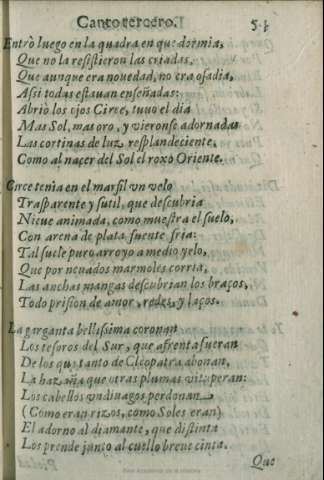 Canto tercero.
Entrò luego en la quadra en que dormia,
Que no la resistieron las criadas,
Que aunque era nouedad, no era osadia,
Assi todas estauan enseñadas:
Abriò los ojos Circe, tuuo el dia
Mas Sol, mas oro, y vieronse adornadas
Las cortinas de luz resplandeciente,
Como al nacer del Sol el roxo Oriente.
Circe tenia en el marfil vn velo
Trasparente y sutil, que descubria
Nieue animada, como muestra el suelo,
Con arena de plata fuente fria:
Tal suele puro arroyo a medio yelo,
Que por neuados marmoles corria,
Las anchas mangas descubrian los braços,
Todo prision de amor, redes, y laços.
La garganta bellissima coronan
Los tesoros del Sur, que afrenta fueran
De los que tanto de Cleopatra abonan,
La hazaña que otras plumas vituperan:
Los cabellos vndiuagos perdonan
(Como eran rizos, como Soles eran)
El adorno al diamante, que distinta
Los prende junto al cuello breue cinta.
Que